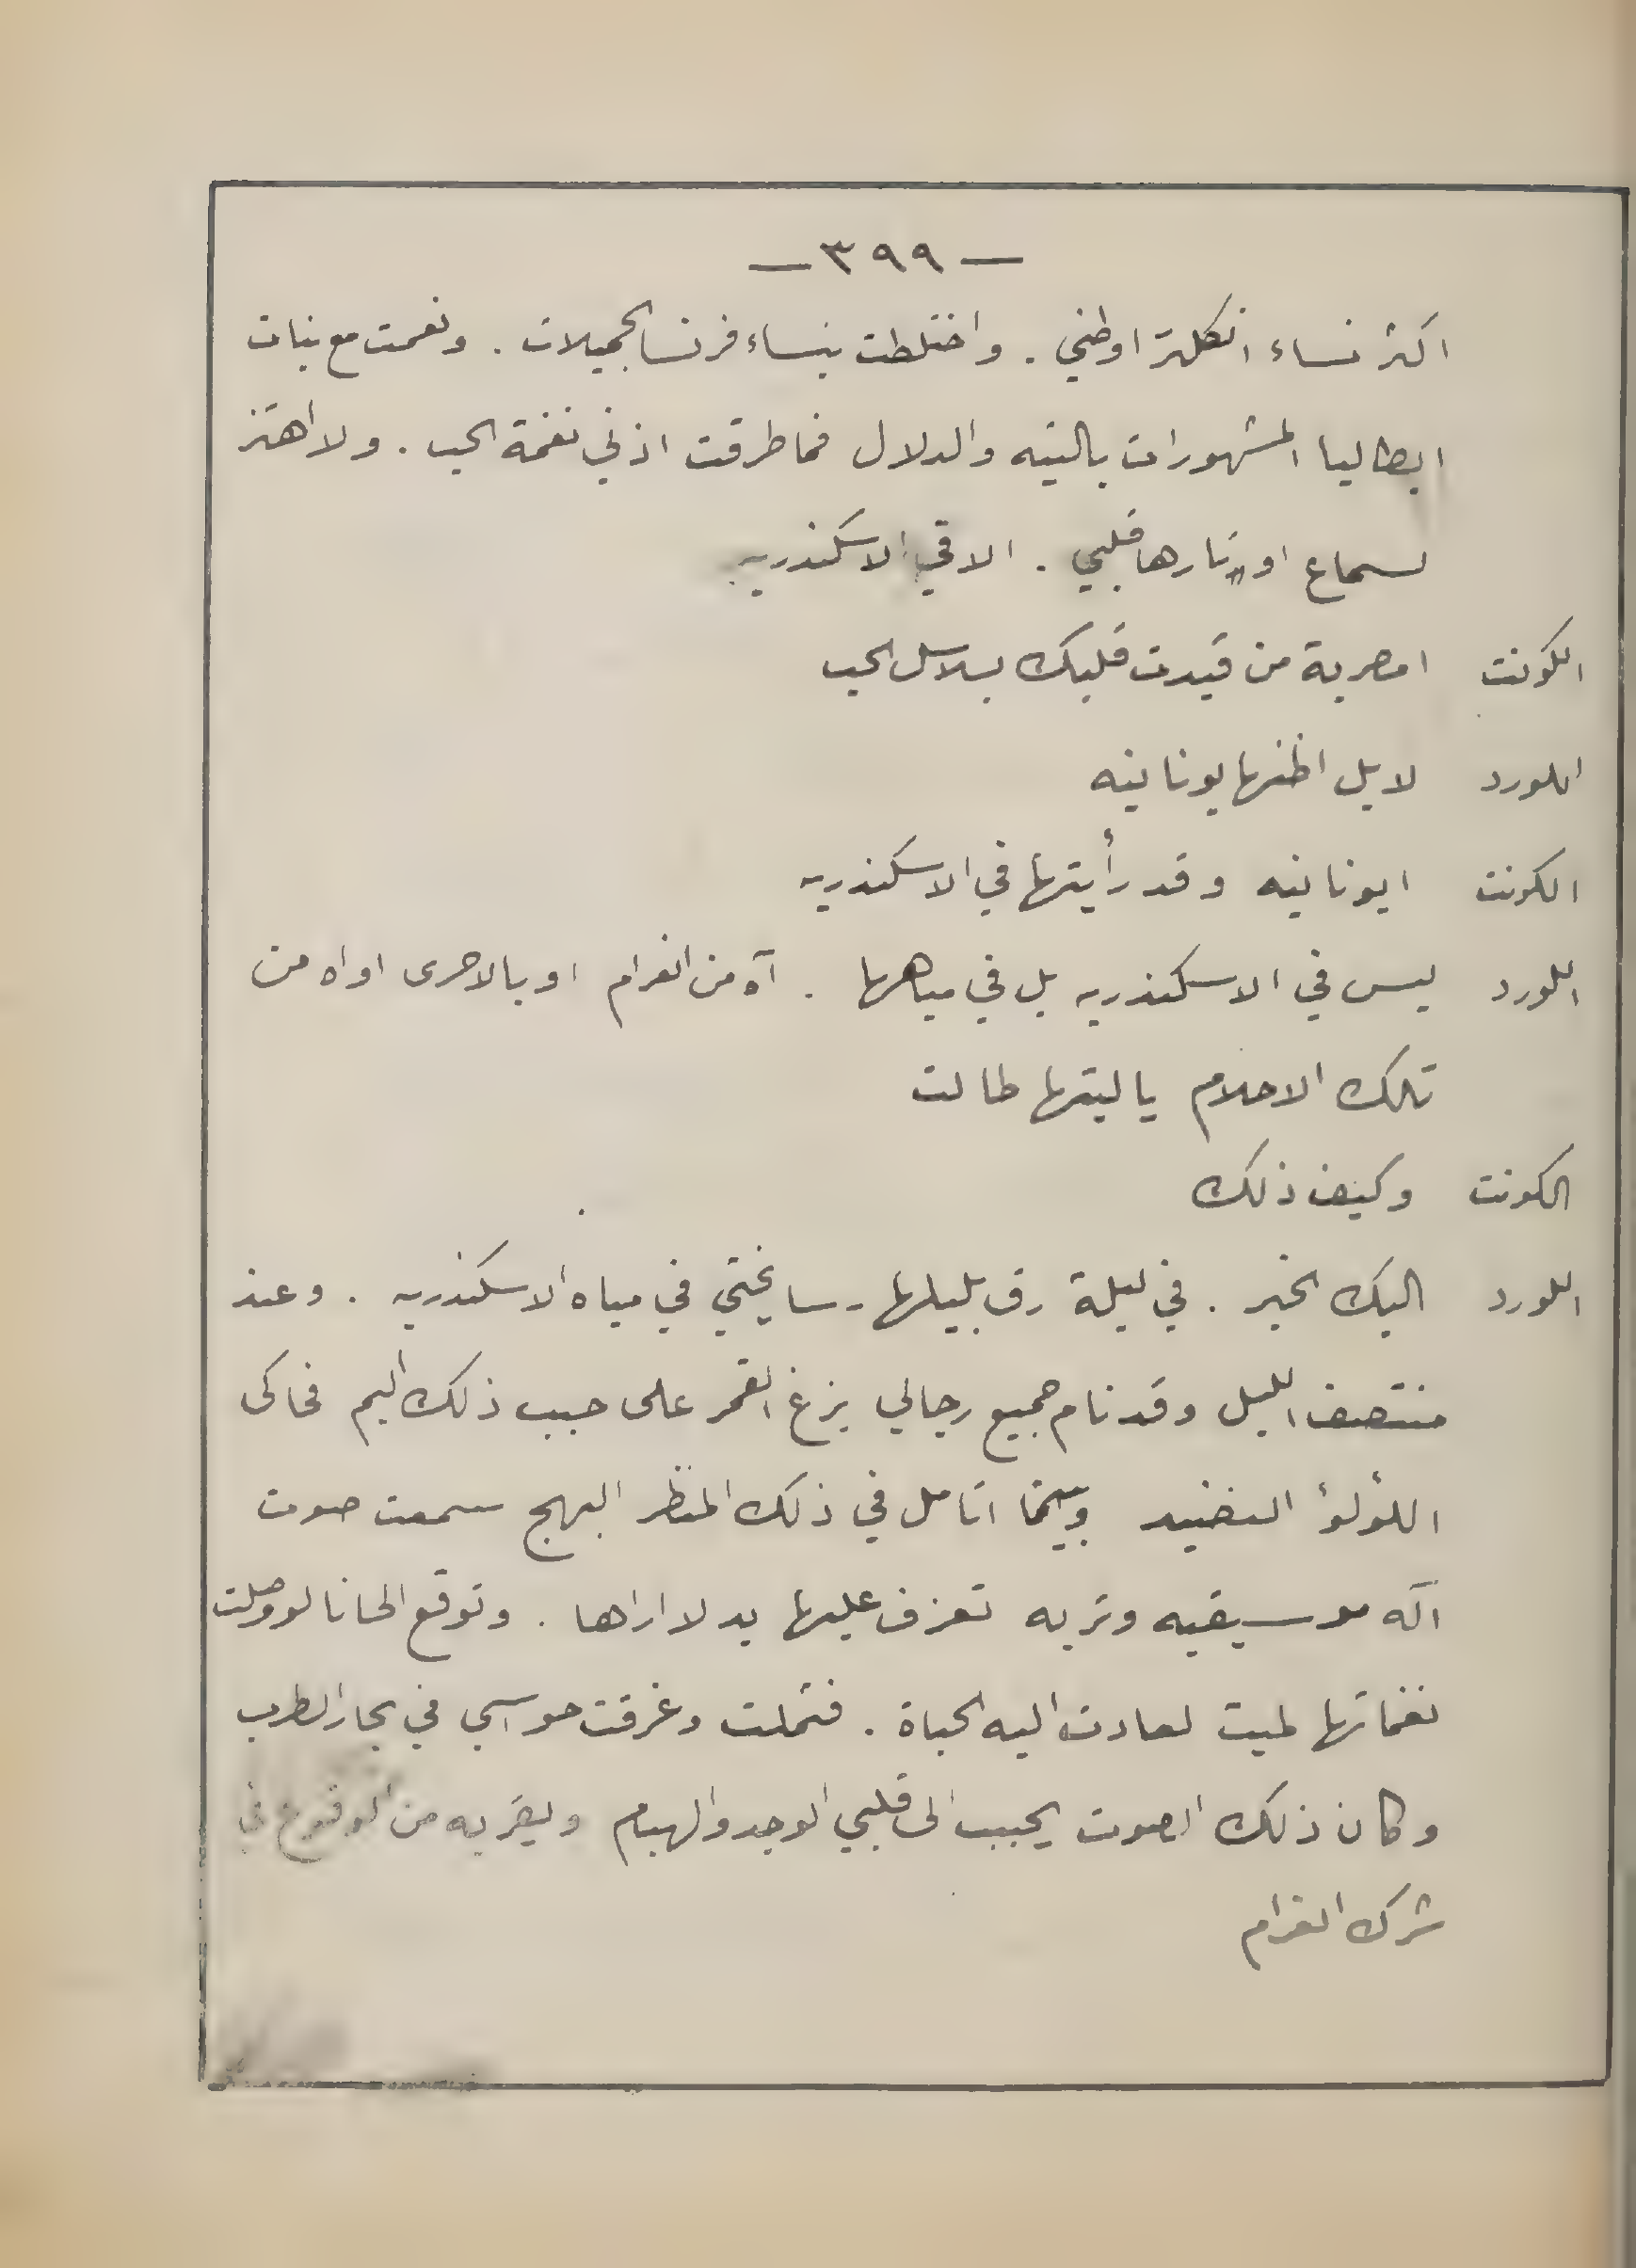 — ٣٩٩ —
اكثر نساء انكلترا وطني . واختلطت بنساء فرنسا الجميلات . ونعمت مع بنات
ايطاليا المشهورات بالتيه والدلال فما طرقت اذني نغمة الحب . ولا اهتز
لسماع اوتارها قلبي . الا في الاسكندريه
الكونت امصرية من قيدت قلبك بسلاسل الحب
اللورد لا بل اظنها يونانيه
الكونت ايونانيه وقد رأيتها في الاسكندريه
اللورد ليس في الاسكندريه بل في مياهها . آه من الغرام او بالاحرى اواه من
تلك الاحلام يا ليتها طالت
الكونت وكيف ذلك
اللورد اليك الخبر . في ليلة رق بليلها رسا يختي في مياه الاسكندريه . وعند
منتصف الليل وقد نام جميع رجالي بزغ القمر على حبب ذلك اليم فحاكى
اللؤلؤ النضيد وبينما اتامل في ذلك المنظر البهج سمعت صوت
آله موسيقيه وتريه تعزف عليها يد لا اراها . وتوقع الحانا لو وصلت
نغماتها لميت لعادت اليه الحياة . فثملت وغرقت حواسي في بحار الطرب
وكان ذلك الصوت يحبب الى قلبي الوجد والهيام ويقربه من الوقوع في
شرك الغرام